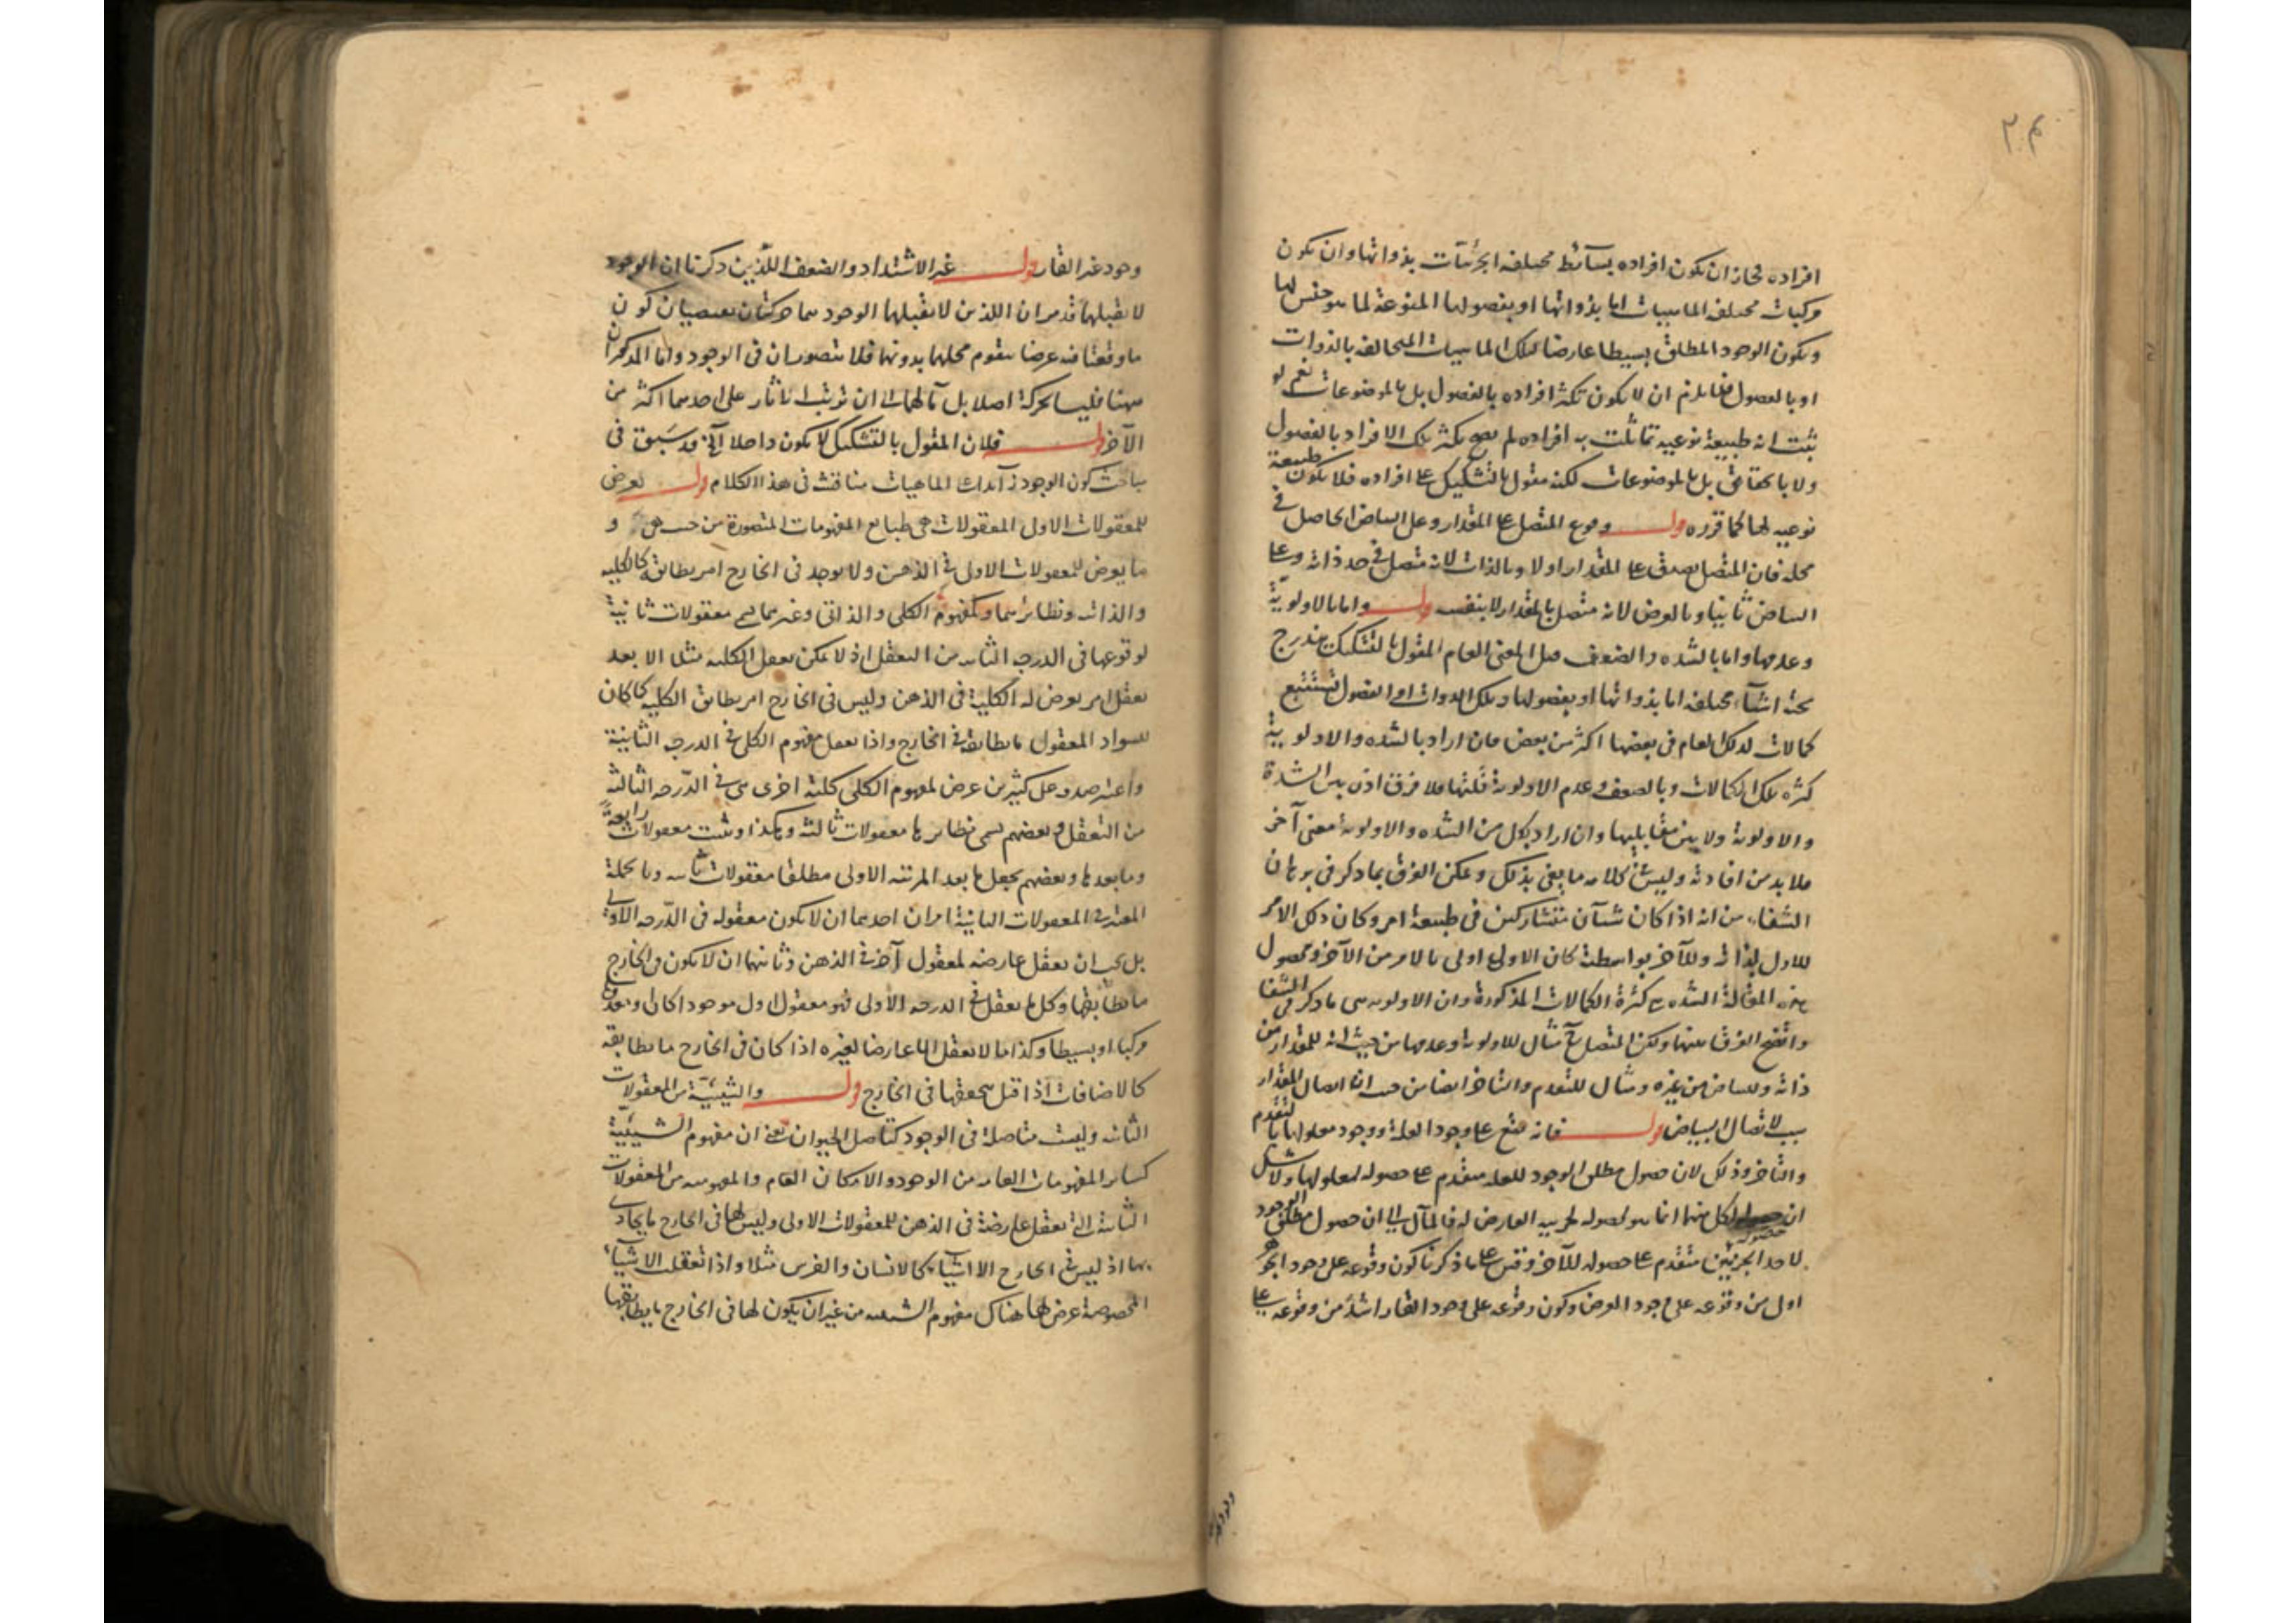 ٣٠٤
افراده فجاز ان تكون افراده بسائط مختلفة الجزئيات بذواتها وان تكون
مركبات مختلفة الماهيات اما بذواتها او بفصولها المنوعة لما هو جنس لها
ويكون الوجود المطلق بسيطا عارضا لتلك الماهيات المتخالفة بالذوات
او بالفصول فلا يلزم ان لا يكون تكثر افراده بالفصول بل بالموضوعات نعم لو
ثبت انه طبيعة نوعية تماثلت به افراده لم يصح تكثر تلك الافراد بالفصول
ولا بالحقائق بل بالموضوعات لكنه مقول بالتشكيك على افراده فلا يكون طبيعة
نوعية لها كما قرره قوله وقوع المتصل على المقدار وعلى البياض الحاصل في
محله فان المتصل يصدق على المقدار اولا وبالذات لانه متصل في حد ذاته وعلى
البياض ثانيا وبالعرض لانه متصل بالمقدار لا بنفسه قوله واما بالاولوية
وعدمها واما بالشدة والضعف قيل المعنى العام المقول بالتشكيك يندرج
تحته اشياء مختلفة اما بذواتها او بفصولها وتلك الذوات او الفصول تستتبع
كمالات لذلك العام في بعضها اكثر من بعض فان اراد بالشدة والاولوية
كثرة تلك الكمالات وبالضعف وعدم الاولوية قلتها فلا فرق اذن بين الشدة
والاولوية ولا بين مقابليها وان اراد بكل من الشدة والاولوية معنى آخر
فلا بد من افادته وليس في كلامه ما يفي بذلك ويمكن الفرق بما ذكر في برهان
الشفاء من انه اذا كان شيآن متشاركين في طبيعة امر وكان ذلك الامر
للاول بذاته وللآخر بواسطته كان الاول اولى بالامر من الآخر ومحصول
هذه المقالة الشدة هي كثرة الكمالات المذكورة وان الاولوية هي ما ذكر في الشفا
واتضح الفرق بينهما ولكن المتصل مثال للاولوية وعدمها من حيث انه للمقدار من
ذاته وللبياض من غيره ومثال للتقدم والتاخر ايضا من حيث ان اتصال المقدار
سبب لاتصال البياض قوله فانه يقع على وجود العلة ووجود معلولها بالتقدم
والتاخر وذلك لان حصول مطلق الوجود للعلة متقدم على حصوله لمعلولها ولا شك
ان حصوله لكل منهما انما هو لحصوله لجزئيه العارض له فالمآل الى ان حصول مطلق الوجود
لاحد الجزئيين متقدم على حصوله للآخر وقس على ما ذكرنا كون وقوعه على وجود الجوهر
اولى من وقوعه على وجود العرض وكون وقوعه على وجود القار اشد من وقوعه على
وجود غير القار قوله غير الاشتداد والضعف اللذين ذكرنا ان الوجود
لا يقبلهما قد مر ان اللذين لا يقبلهما الوجود هما حركتان تقتضيان كون
ما وقعتا فيه عرضا يتقوم محلهما بدونهما فلا يتصوران في الوجود واما المذكوران
ههنا فليسا بحركة اصلا بل مآلهما الى ان ترتب الآثار على احدهما اكثر من
الآخر قوله فلان المقول بالتشكيك لا يكون داخلا الخ قد سبق في
مباحث كون الوجود زائدا على الماهيات مناقشة في هذا الكلام قوله تعرض
للمعقولات الاول المعقولات هي طبايع المفهومات المتصورة من حيث هي و
ما يعرض للمعقولات الاولى في الذهن ولا يوجد في الخارج امر يطابقه كالكلية
والذاتية ونظائرهما وكمفهوم الكلي والذاتي وغيرهما يسمى معقولات ثانية
لوقوعها في الدرجة الثانية من التعقل اذ لا يمكن تعقل الكلية مثلا الا بعد
تعقل امر يعرض له الكلية في الذهن وليس في الخارج امر يطابق الكلية كما كان
للسواد المعقول ما يطابقه في الخارج واذا تعقل مفهوم الكلي في الدرجة الثانية
واعتبر صدقه على كثيرين عرض لمفهوم الكلي كلية اخرى هي في الدرجة الثالثة
من التعقل وبعضهم يسمي نظايرها معقولات ثالثة وهكذا ويثبت معقولات رابعة
وما بعدها وبعضهم يجعل ما بعد المرتبة الاولى مطلقا معقولات ثانية وبالجملة
المعتبر في المعقولات الثانية امران احدهما ان لا يكون معقولة في الدرجة الاولى
بل يجب ان تعقل عارضة لمعقول آخر في الذهن وثانيهما ان لا يكون في الخارج
ما يطابقها وكل ما يعقل في الدرجة الاولى فهو معقول اول موجودا كان او معدوما
مركبا او بسيطا وكذا ما لا يعقل الا عارضا لغيره اذا كان في الخارج ما يطابقه
كالاضافات اذا قيل بتحققها في الخارج قوله والشيئية من المعقولات
الثانية وليست متاصلة في الوجود كتاصل الحيوان يعني ان مفهوم الشيئية
كساير المفهومات العامة من الوجود والامكان العام والمفهومية من المعقولات
الثانية التي تعقل عارضة في الذهن للمعقولات الاولى وليس لها في الخارج ما يحاذى
بها اذ ليس في الخارج الا اشياء كالانسان والفرس مثلا واذا تعقلت الاشياء
المخصوصة عرض لها هناك مفهوم الشيئية من غير ان يكون لها في الخارج ما يطابقها